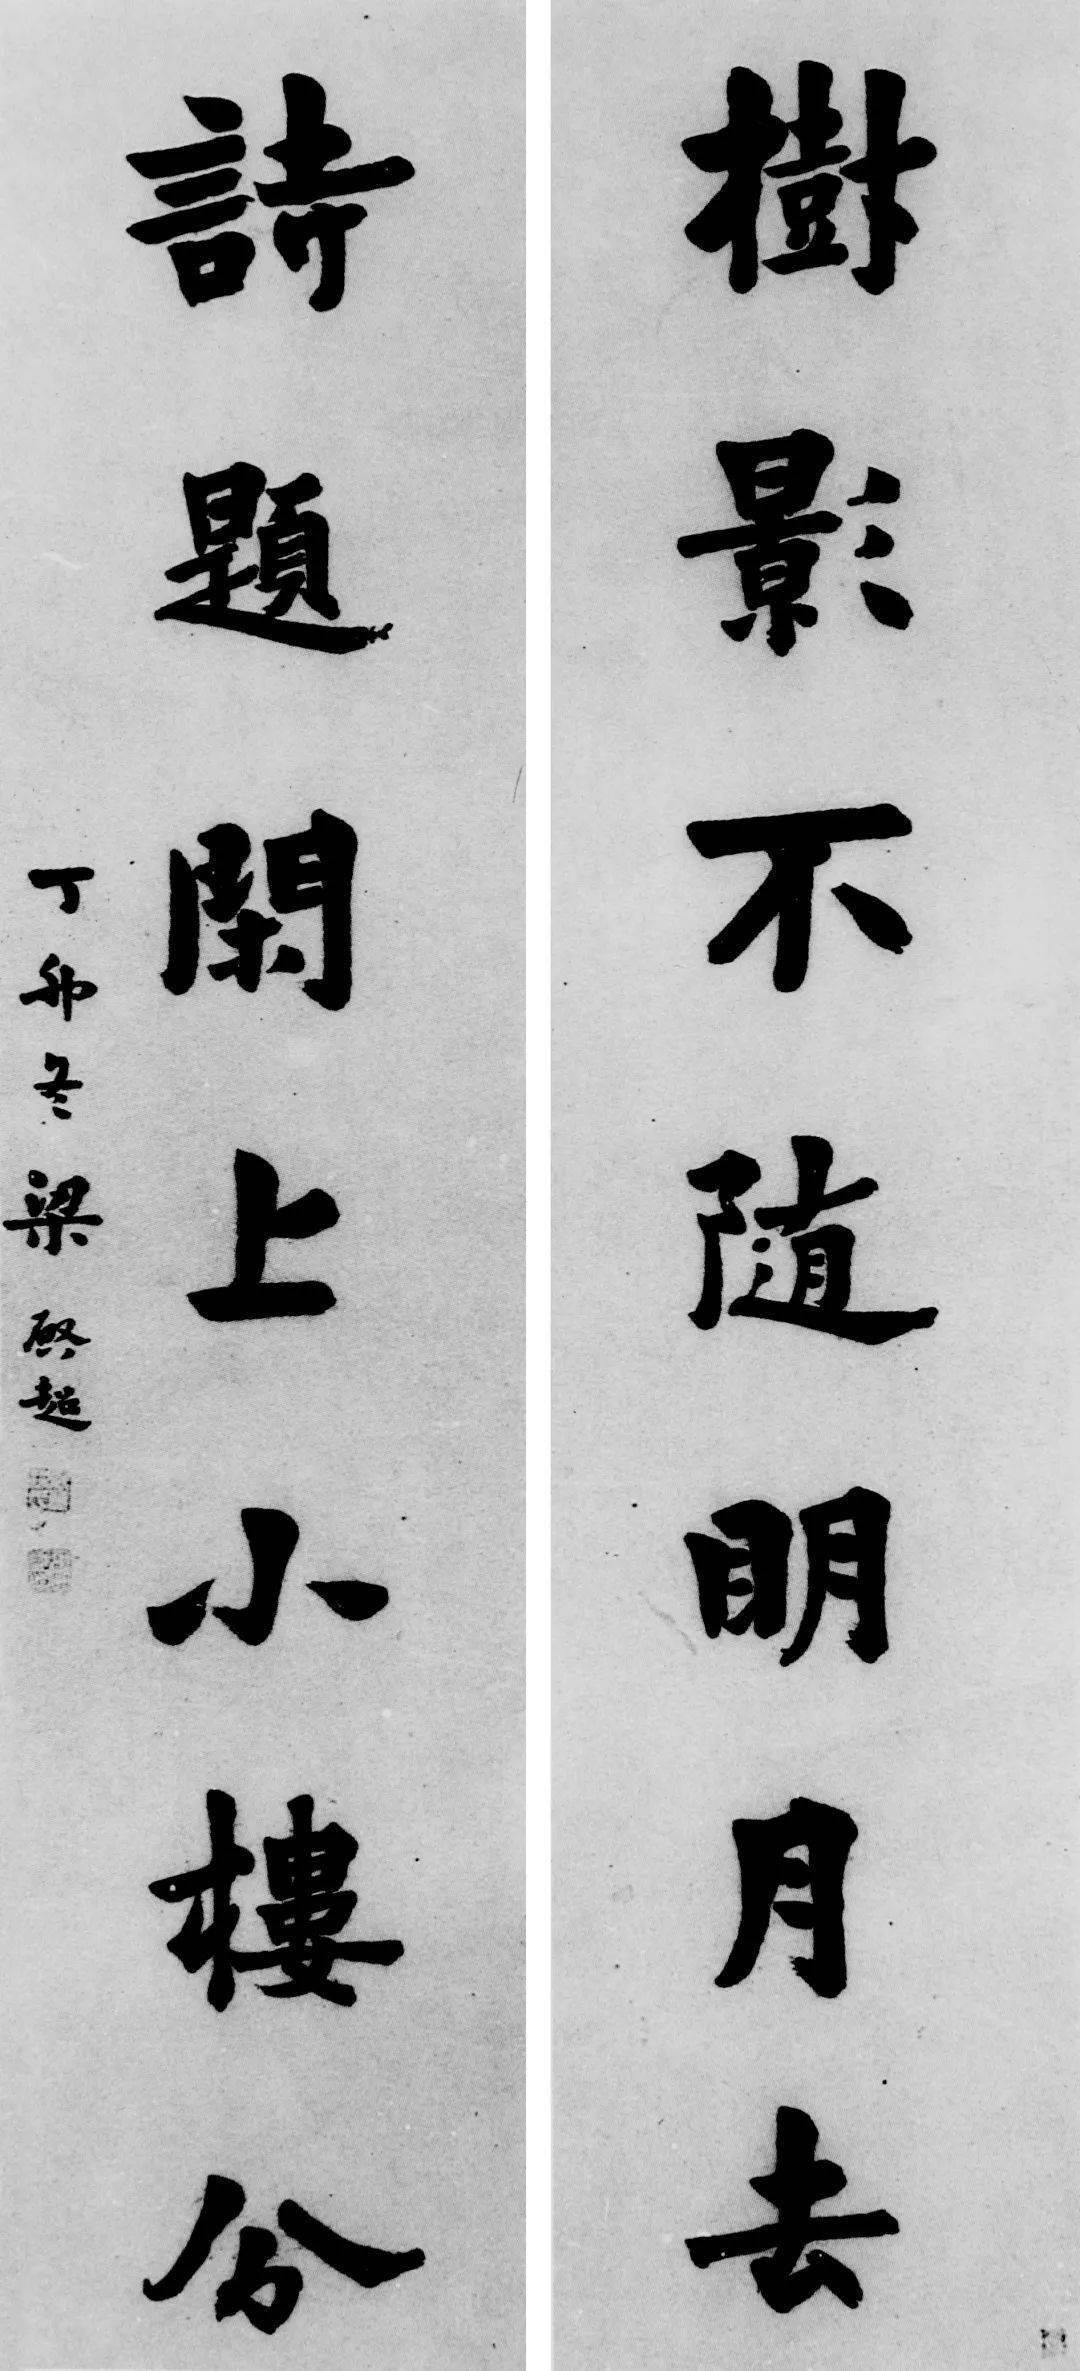 樹影不隨明月去
詩題閑上小樓分
丁卯冬梁啟超